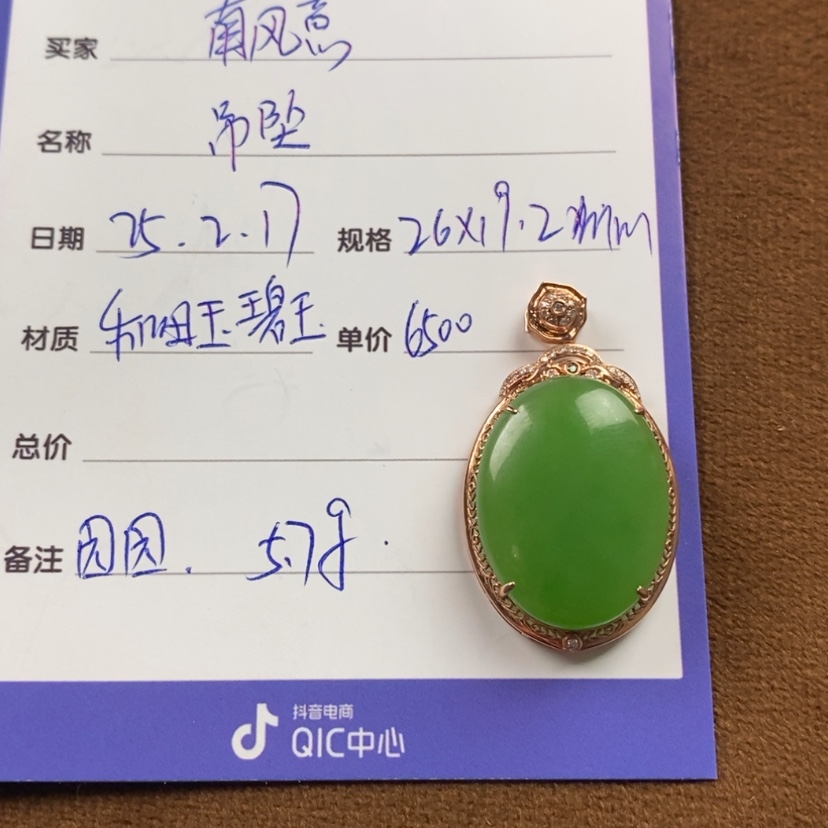 买家 南风意
名称 吊坠
日期 25.2.17 规格 26X19.2mm
材质 和田玉.碧玉. 单价 6500
总价
备注 园园. 5.7g.
抖音电商
QIC中心